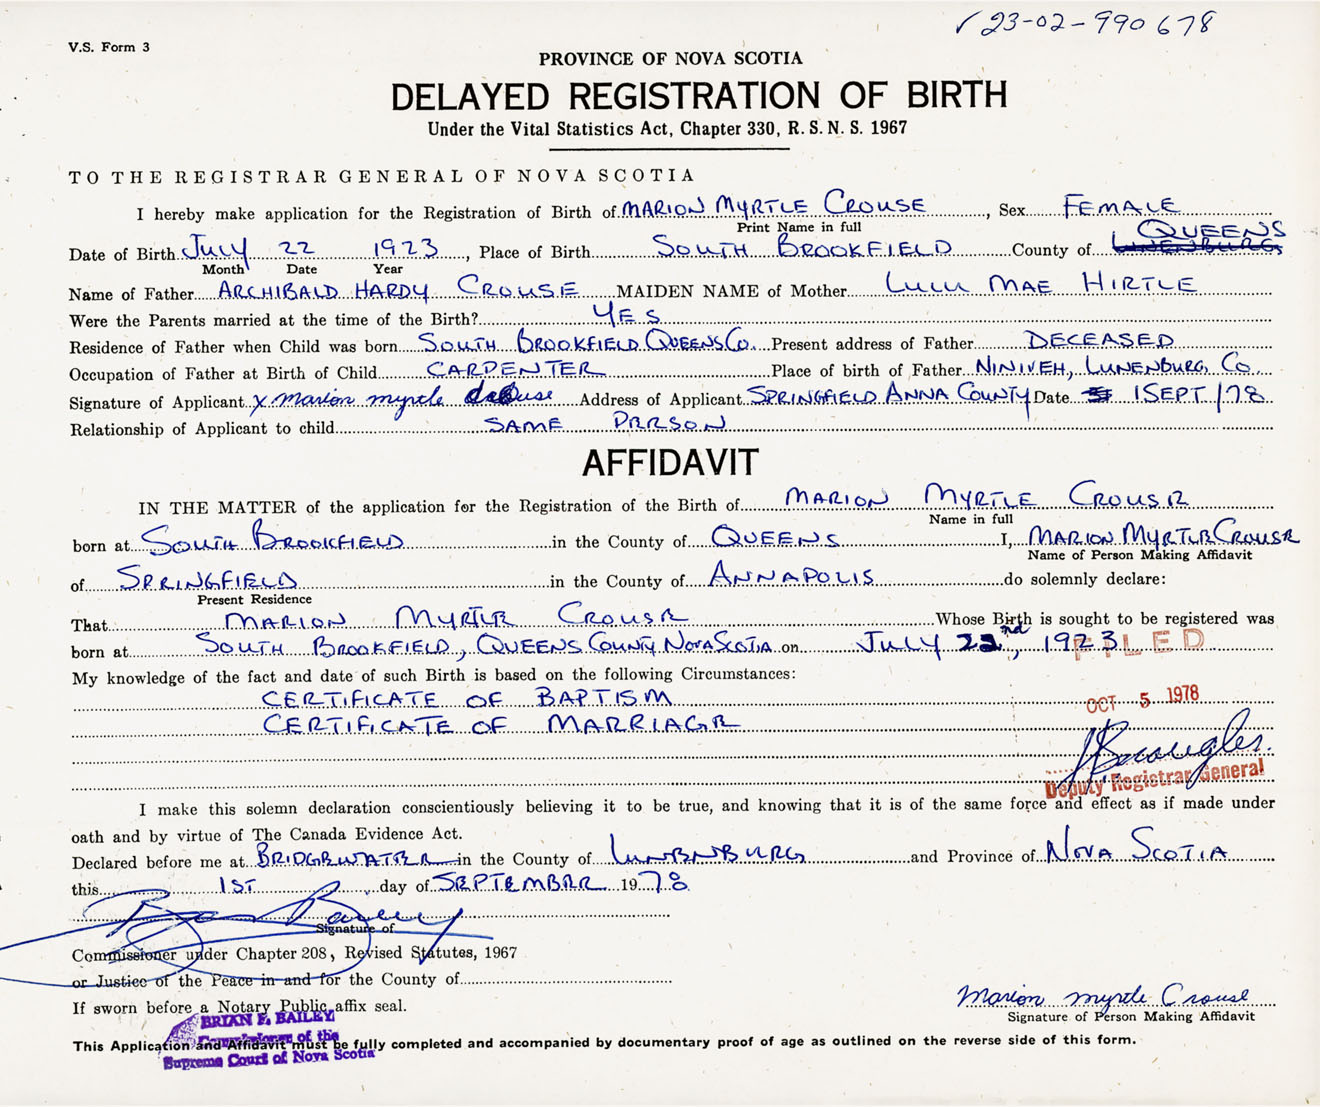 ✓ 23-02-990678
V.S. Form 3
PROVINCE OF NOVA SCOTIA
DELAYED REGISTRATION OF BIRTH
Under the Vital Statistics Act, Chapter 330, R. S. N. S. 1967
TO THE REGISTRAR GENERAL OF NOVA SCOTIA
I hereby make application for the Registration of Birth of MARION MYRTLE CROUSE, Sex FEMALE
Print Name in full
QUEENS
Date of Birth JULY 22 1923, Place of Birth SOUTH BROOKFIELD County of LUNENBURG
Month Date Year
Name of Father ARCHIBALD HARDY CROUSE MAIDEN NAME of Mother LULU MAE HIRTLE
Were the Parents married at the time of the Birth? YES
Residence of Father when Child was born SOUTH BROOKFIELD QUEENS Co. Present address of Father DECEASED
Occupation of Father at Birth of Child CARPENTER Place of birth of Father NINIVEH, LUNENBURG, Co.
Signature of Applicant x Marion myrtle Address of Applicant SPRINGFIELD ANNA COUNTY Date 1 SEPT/78
Relationship of Applicant to child SAME PRRSON
AFFIDAVIT
IN THE MATTER of the application for the Registration of the Birth of MARION MYRTLE CROUSR
Name in full
born at SOUTH BROOKFIELD in the County of QUEENS I, MARION MYRTLR CROUSR
Name of Person Making Affidavit
of SPRINGFIELD in the County of ANNAPOLIS do solemnly declare:
Present Residence
That MARION MYRTLR CROUSR Whose Birth is sought to be registered was
born at SOUTH BROOKFIELD, QUEENS COUNTY NOVA SCOTIA on JULY 22nd, 1923
FILED
My knowledge of the fact and date of such Birth is based on the following Circumstances:
CERTIFICATE OF BAPTISM
OCT 5 1978
CERTIFICATE OF MARRIAGR
Deputy Registrar General
I make this solemn declaration conscientiously believing it to be true, and knowing that it is of the same force and effect as if made under
oath and by virtue of The Canada Evidence Act.
Declared before me at BRIDGRWATRR in the County of LUNRNBURG and Province of NOVA SCOTIA
this 1ST day of SRPTEMBRR 1978
Signature of
Commissioner under Chapter 208, Revised Statutes, 1967
or Justice of the Peace in and for the County of
If sworn before a Notary Public affix seal.
Marion myrtle Crouse
Signature of Person Making Affidavit
BRIAN F. BAILEY
Commissioner of the
Supreme Court of Nova Scotia
This Application and Affidavit must be fully completed and accompanied by documentary proof of age as outlined on the reverse side of this form.